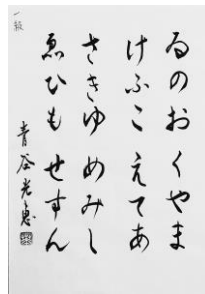 一級
ゐのおくやま
けふこえてあ
さきゆめみし
ゑひもせすん
青谷光恵